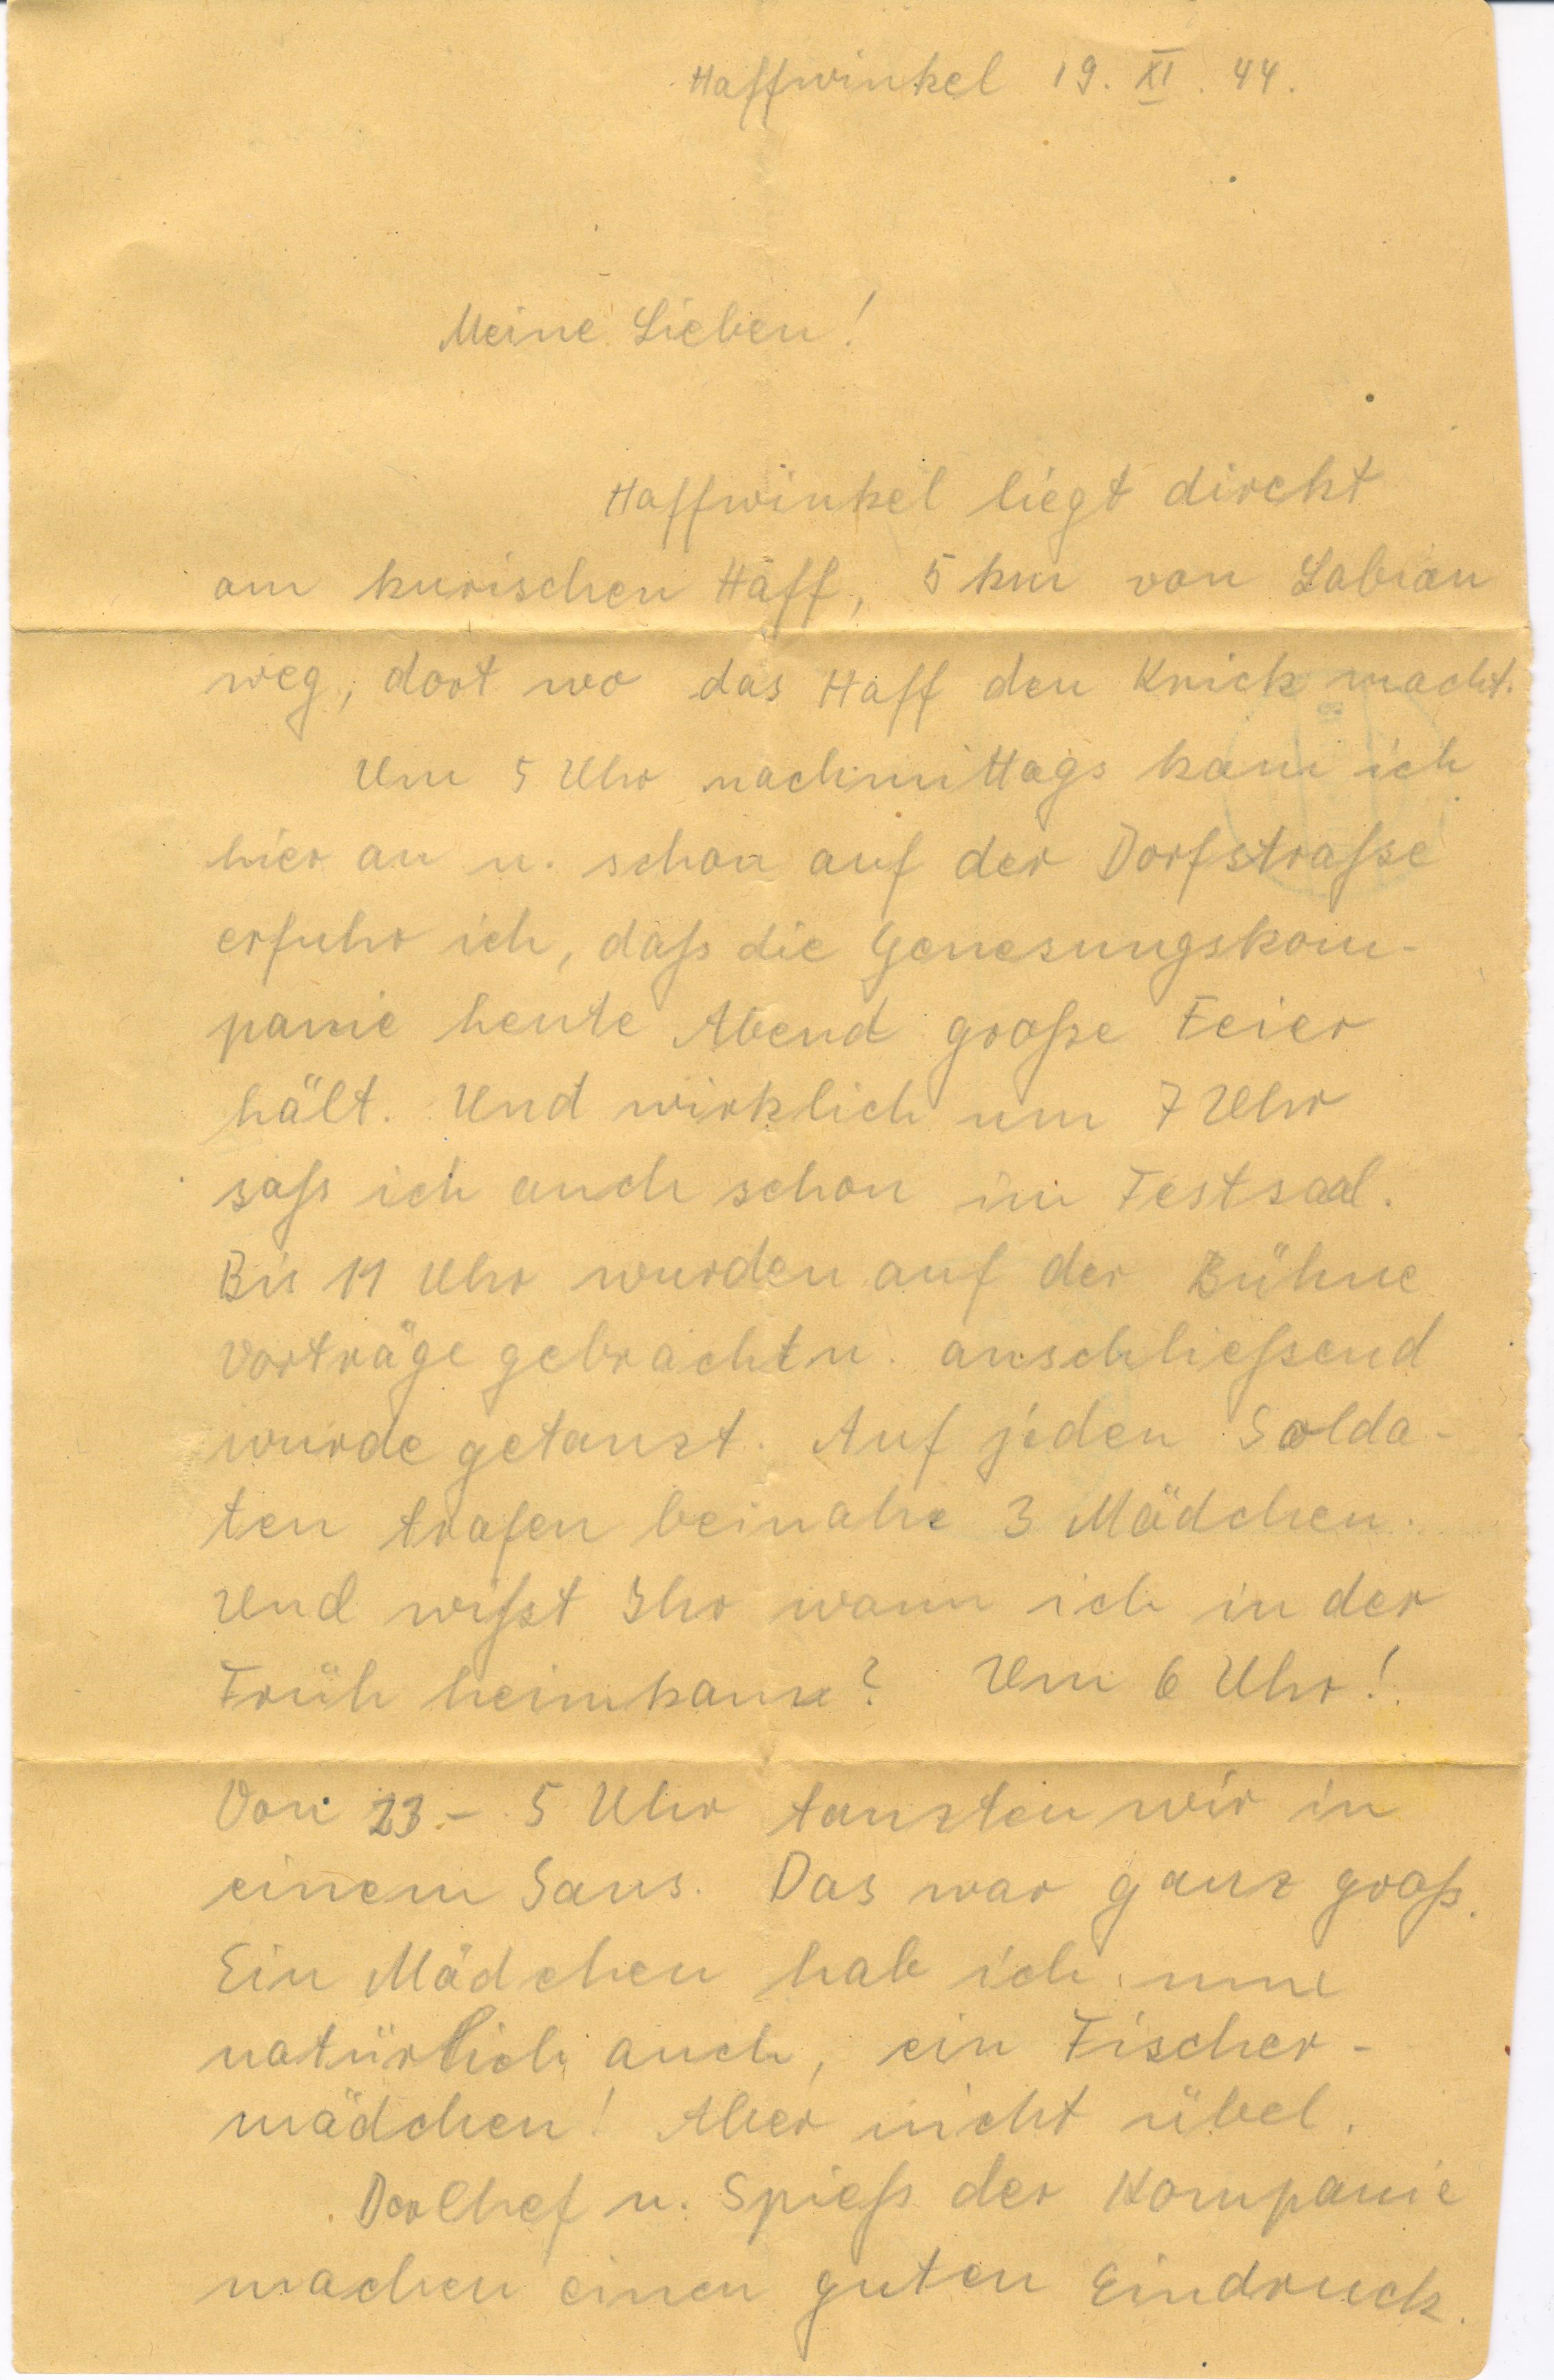 Haffwinkel 19. XI. 44.
Meine Lieben!
Haffwinkel liegt direkt
am kurischen Haff, 5 km von Labiau
weg, dort wo das Haff den Knick macht.
Um 5 Uhr nachmittags kam ich
hier an u. schon auf der Dorfstraße
erfuhr ich, daß die Genesungskom-
panie heute Abend große Feier
hält. Und wirklich um 7 Uhr
sass ich auch schon im Festsaal.
Bis 11 Uhr wurden auf der Bühne
Vorträge gebracht u. anschliessend
wurde getanzt. Auf jeden Solda-
ten trafen beinahe 3 Mädchen.
Und wißt Ihr wann ich in der
Früh heimkam? Um 6 Uhr!
Von 23.- 5 Uhr tanzten wir in
einem Saus. Das war ganz groß.
Ein Mädchen hab ich nun
natürlich auch, ein Fischer-
mädchen! Aber nicht übel.
Der Chef u. Spieß der Kompanie
machen einen guten Eindruck.